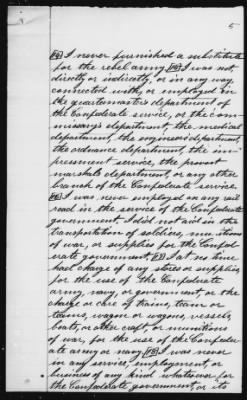 5
(14) I never furnished a substitute
for the rebel army. (15) I was not,
directly or indirectly, or in any way,
connected with, or employed in
the quartermaster's department of
the Confederate service, or the com-
missary's department, the medical
department, the engineers department,
the ordnance department, the im-
pressment service, the provost
marshals department, or any other
branch of the Confederate service.
(16) I was never employed on any rail
road in the service of the Confederate
government. I did not aid in the
transportation of soldiers, munitions
of war, or supplies for the Confed-
erate government. (17) I at no time
had charge of any stores or supplies
for the use of the Confederate
army, navy, or government, or the
charge or care of trains, team or
teams, wagon or wagons, vessels,
boats, or other craft, or munitions
of war, for the use of the Confeder-
ate army or navy. (18) I was never
in any service, employment, or
business of any kind whatsoever for
the Confederate government, or its